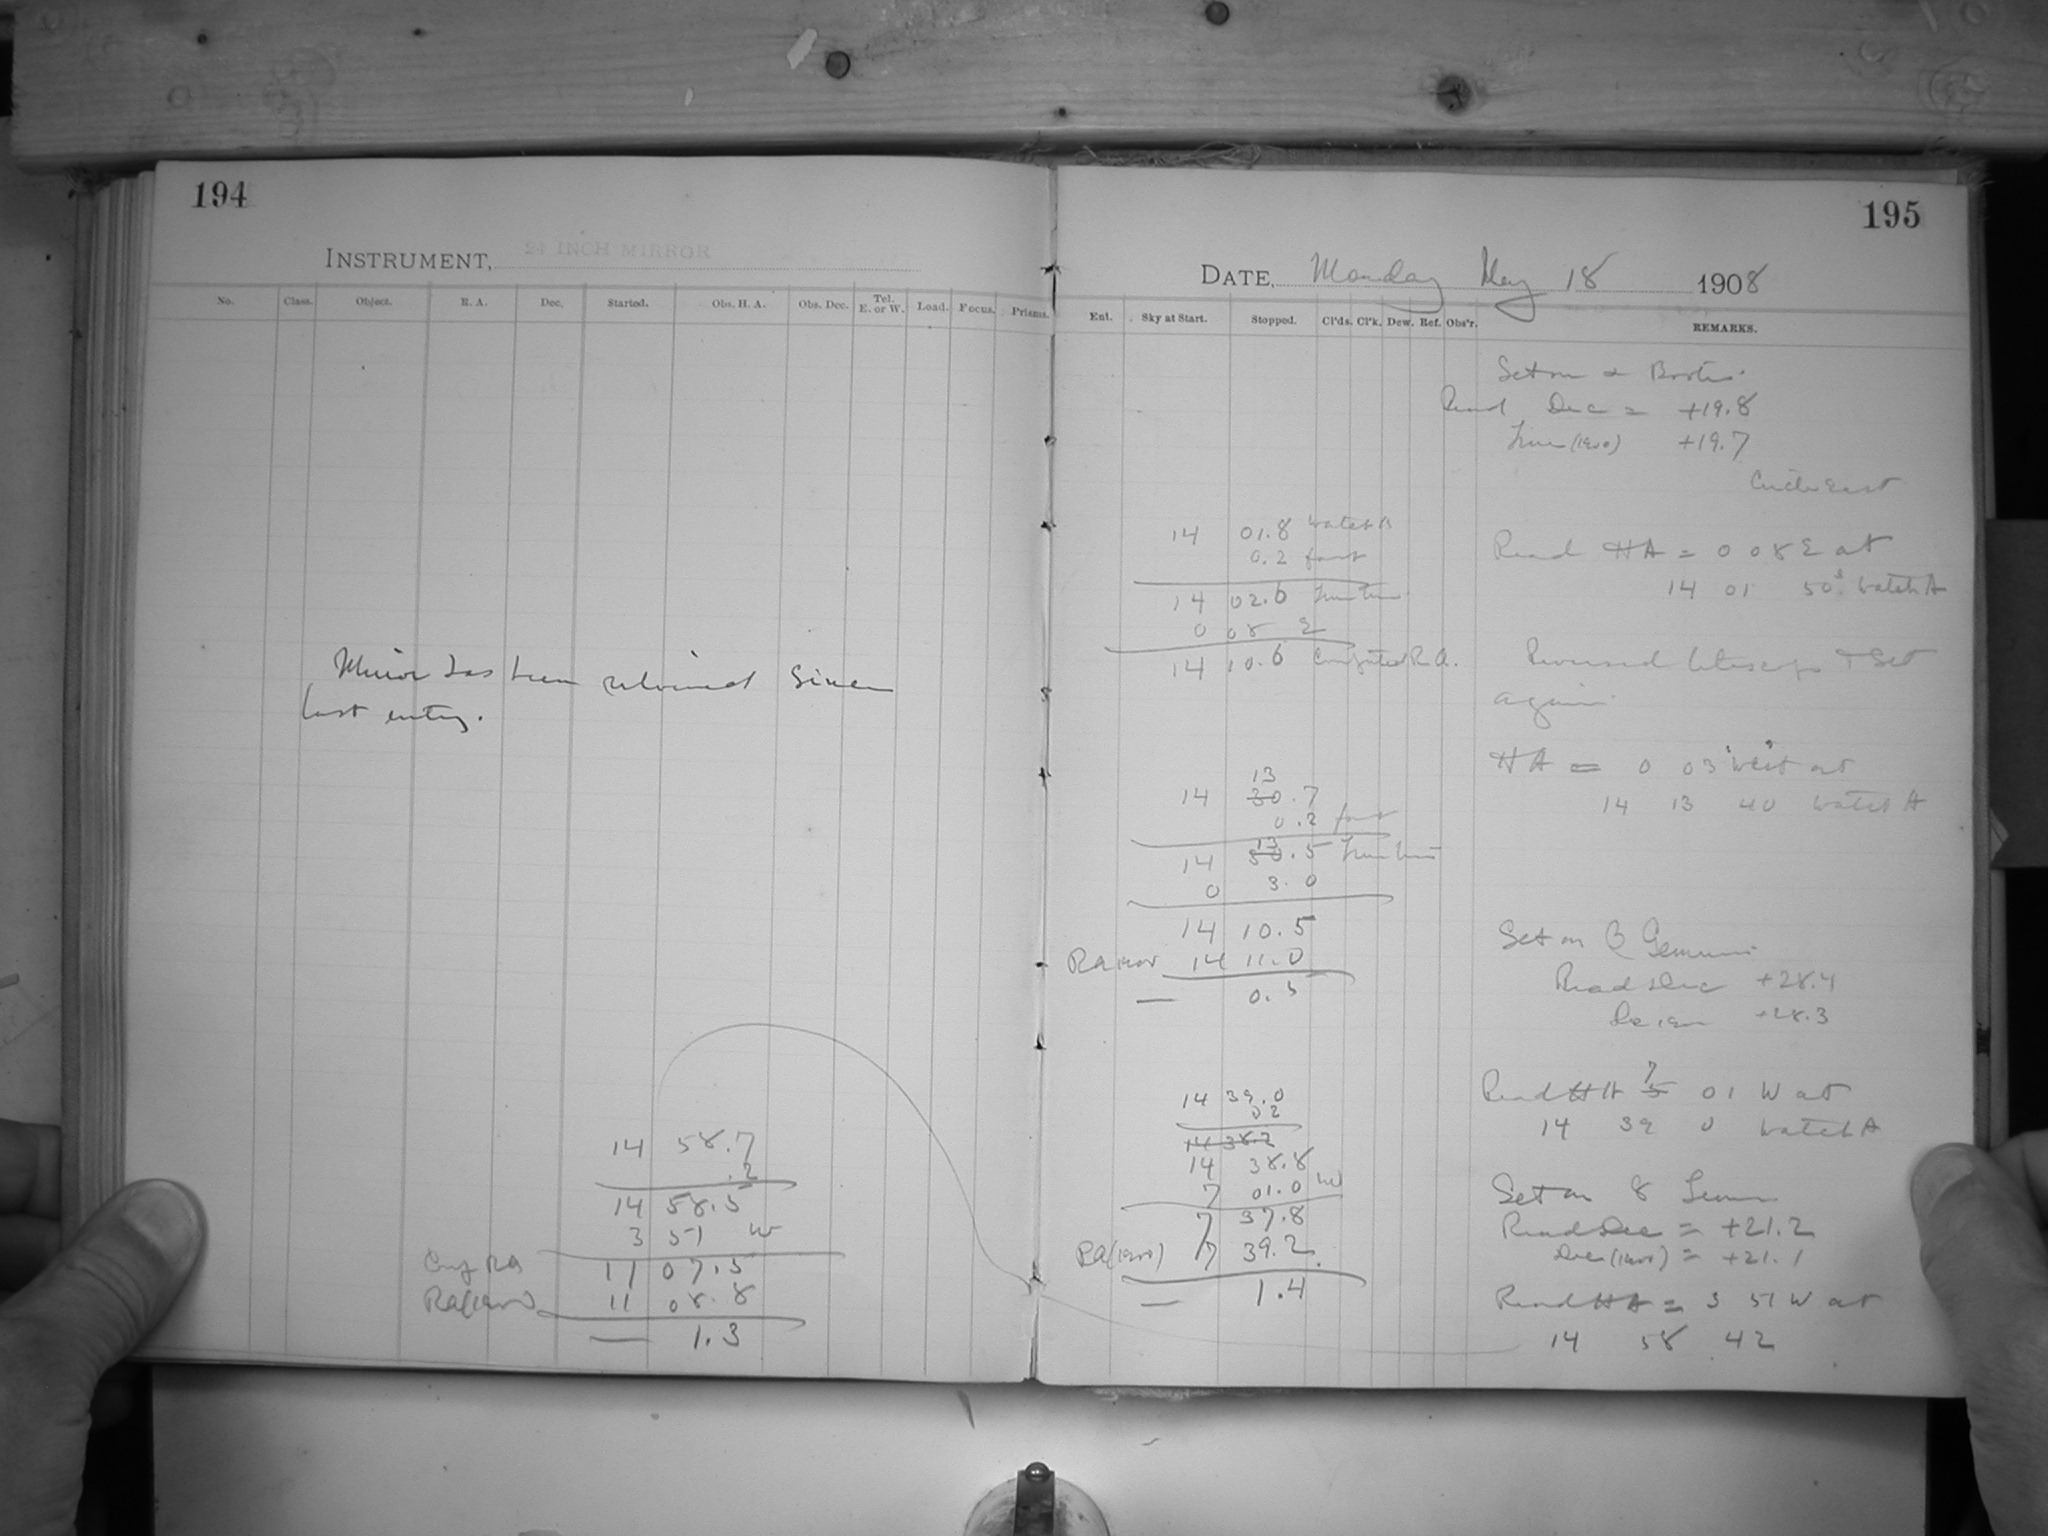 194
INSTRUMENT, 24 INCH MIRROR
No. Class. Object. R. A. Dec. Started. Obs. H. A. Obs. Dec. Tel. E. or W. Load. Focus. Prisms.
Mirror has been resilvered since
last entry.
14 58.7
.2
14 58.5
3 51 W
Comp RA 11 07.5
RA(1900) 11 08.8
— 1.3
195
DATE, Monday May 18 1908
Ent. Sky at Start. Stopped. Cl'ds. Cl'k. Dew. Ref. Obs'r. REMARKS.
Set on α Bootis.
Read Dec = +19.8
True (1900) +19.7
Circle East
14 01.8 Watch A
0.2 fast
14 02.6 True time
0 08 E
14 10.6 Computed R.A.
Read HA = 0 08 E at
14 01 50s Watch A
Reversed telescope & set
again.
HA = 0 03 West at
14 13 40 Watch A
13
14 30.7
0.2 fast
13
14 30.5 True time
0 3.0
14 10.5
RA 1900 14 11.0
— 0.5
Set on β Geminorum
Read Dec +28.4
Dec 1900 +28.3
14 39.0
02
14 38.2
14 38.8
7 01.0 W
7 37.8
RA(1900) 7 39.2
— 1.4
7
Read HA 5 01 W at
14 39 0 Watch A
Set on δ Leonis
Read Dec = +21.2
Dec (1900) = +21.1
Read HA = 3 51 W at
14 58 42